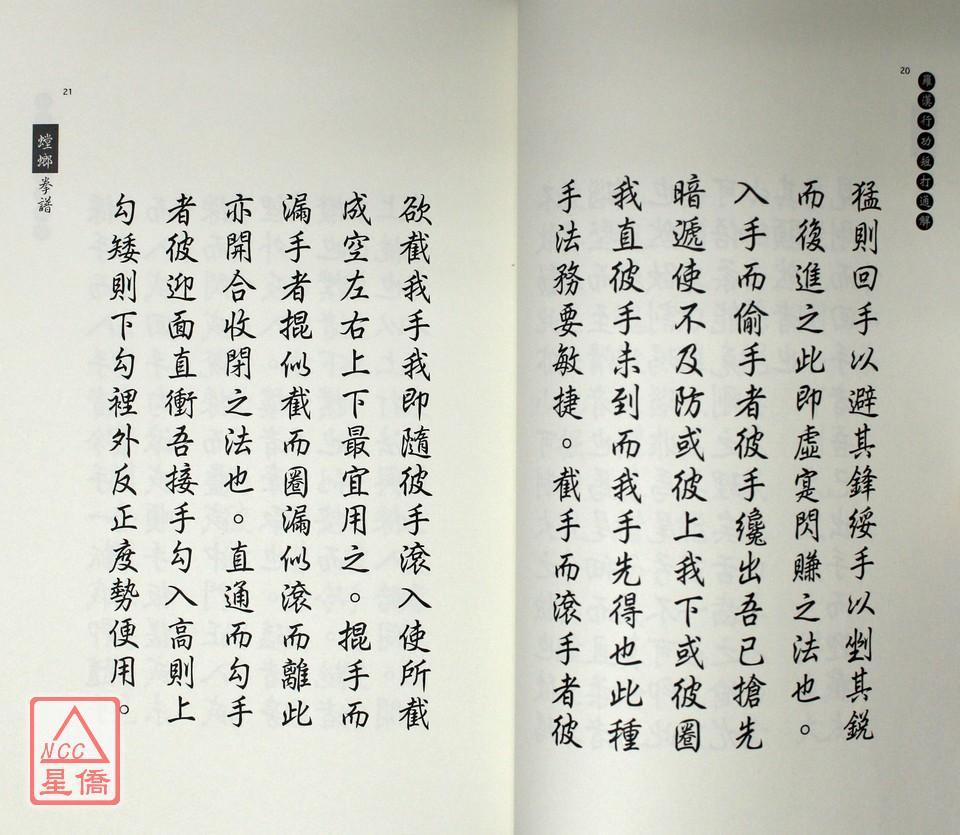 20
羅漢行功短打通解
猛則回手以避其鋒綏手以剉其銳
而後進之此即虛寔閃賺之法也。
入手而偷手者彼手纔出吾已搶先
暗遞使不及防或彼上我下或彼圈
我直彼手未到而我手先得也此種
手法務要敏捷。截手而滾手者彼
21
螳螂拳譜
欲截我手我即隨彼手滾入使所截
成空左右上下最宜用之。掍手而
漏手者掍似截而圈漏似滾而離此
亦開合收閉之法也。直通而勾手
者彼迎面直衝吾接手勾入高則上
勾矮則下勾裡外反正度勢便用。
NCC
星僑